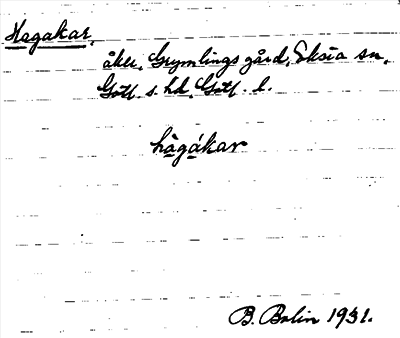 Hagakar,
åker, Grymlings gård, Eksta sn,
Gotl. s. hd, Gotl. l.
hàgákar
B. Bolin 1931.